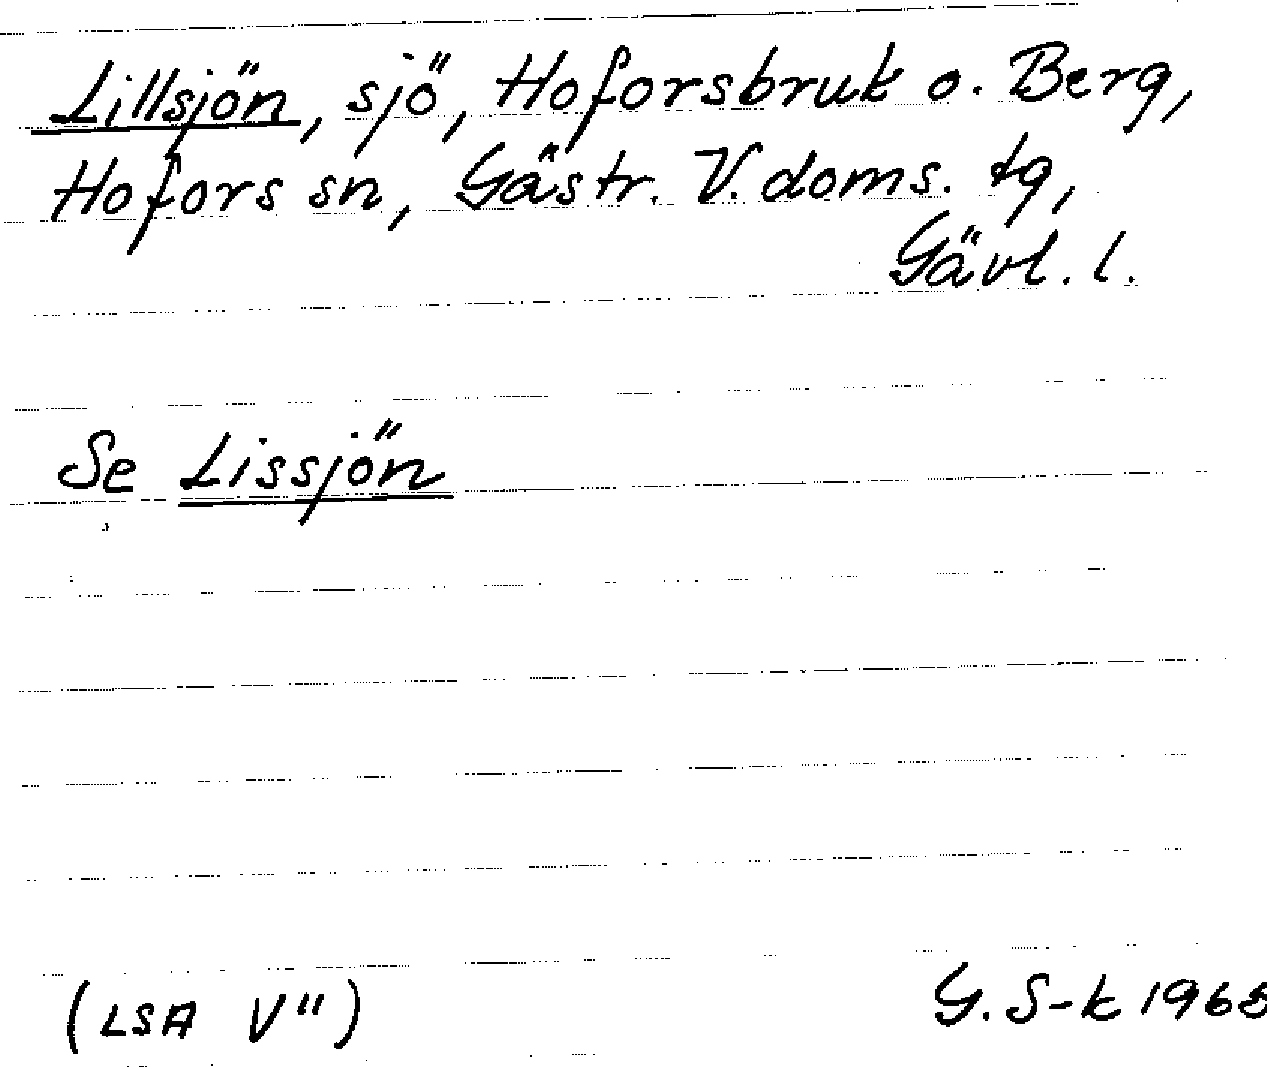 Lillsjön, sjö, Hoforsbruk o. Berg,
Hofors sn, Gästr. V. doms. tg,
Gävl. l.
Se Lissjön
(LSA V")
G. S-k 1965